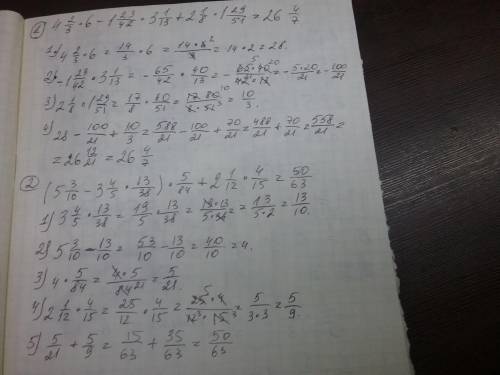 ① 4 2/3 · 6 - 1 23/42 · 3 1/13 + 2 1/8 · 1 29/51 = 26 4/7
1) 4 2/3 · 6 = 14/3 · 6 = 14 · 6²/3 = 14 · 2 = 28.
2) - 1 23/42 · 3 1/13 = - 65/42 · 40/13 = - 65⁵ · 40²⁰/42₂₁ · 13 = - 5 · 20/21 = - 100/21
3) 2 1/8 · 1 29/51 = 17/8 · 80/51 = 17 · 80¹⁰/8 · 51₃ = 10/3.
4) 28 - 100/21 + 10/3 = 588/21 - 100/21 + 70/21 = 488/21 + 70/21 = 558/21 =
= 26 12/21 = 26 4/7
② (5 3/10 - 3 4/5 · 13/38) · 5/84 + 2 1/12 · 4/15 = 50/63
1) 3 4/5 · 13/38 = 19/5 · 13/38 = 19 · 13/5 · 38 = 13/5 · 2 = 13/10.
2) 5 3/10 - 13/10 = 53/10 - 13/10 = 40/10 = 4.
3) 4 · 5/84 = 4 · 5/84₂₁ = 5/21.
4) 2 1/12 · 4/15 = 25/12 · 4/15 = 25⁵ · 4/12₃ · 15₃ = 5/3 · 3 = 5/9.
5) 5/21 + 5/9 = 15/63 + 35/63 = 50/63